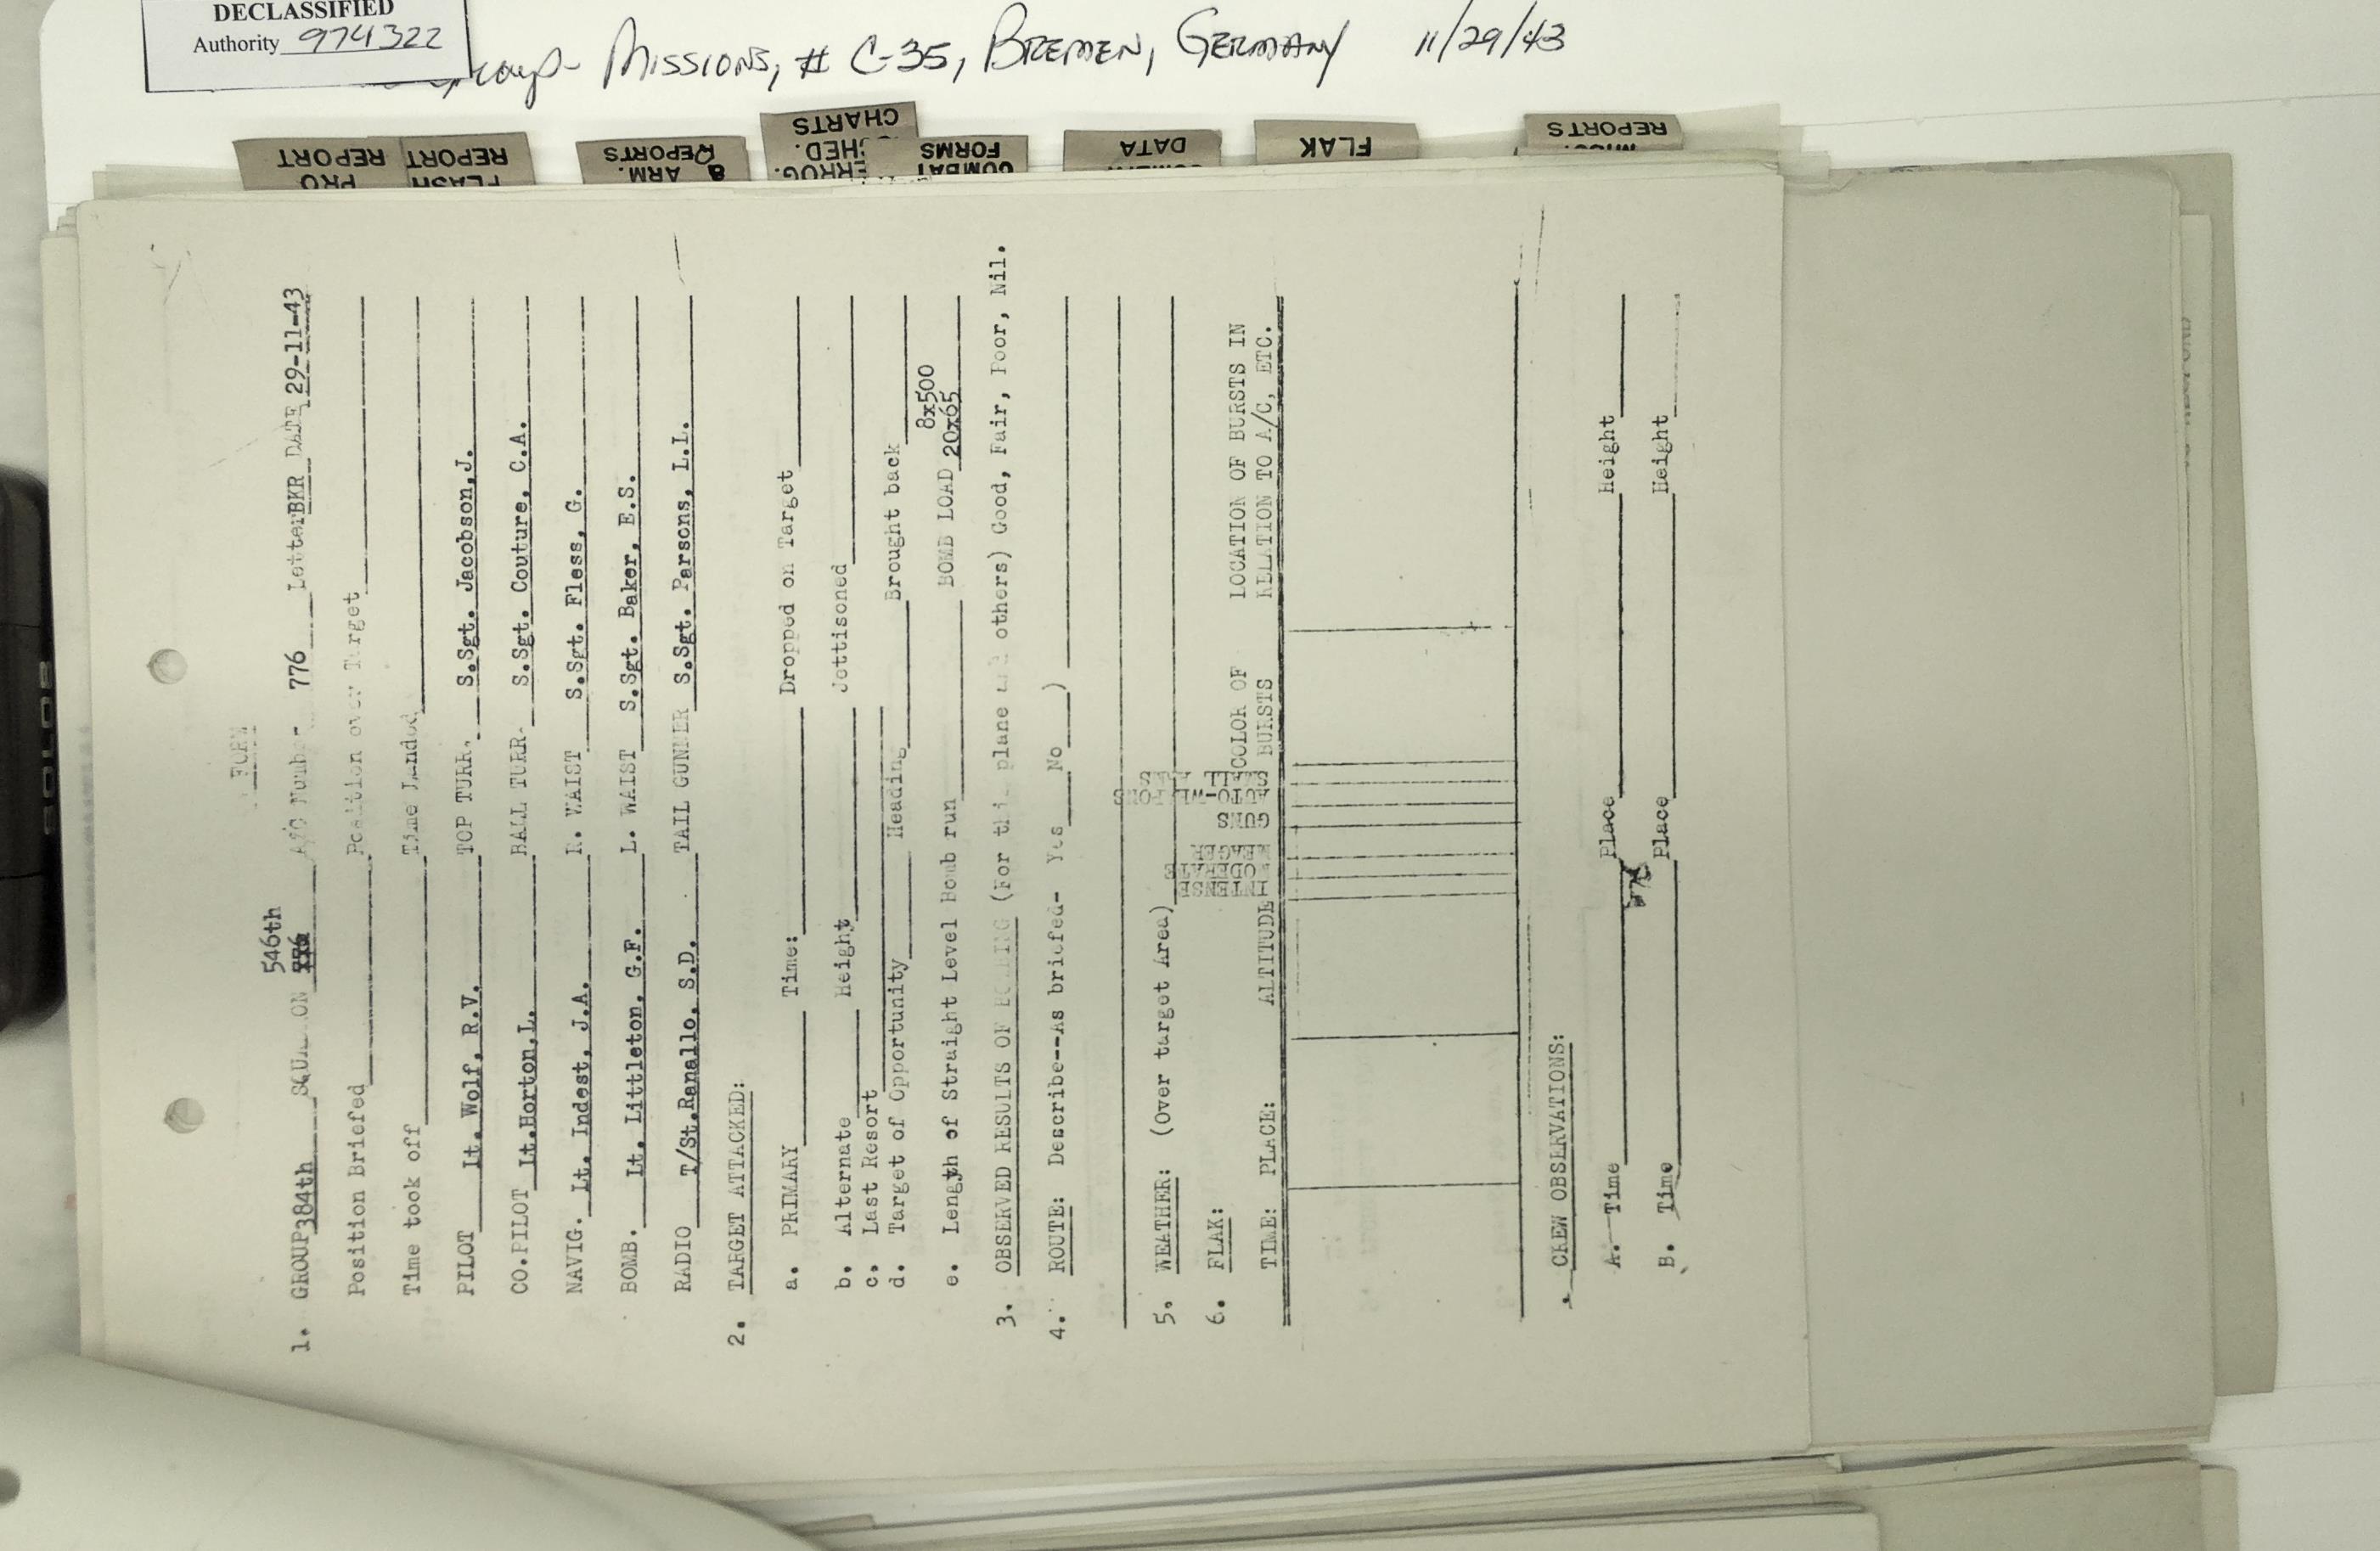 DECLASSIFIED
Authority 974322
Group Missions, # C-35, BREMEN, GERMANY 11/29/43
PRO
REPORT
FLASH
REPORT
& ARM.
REPORTS
CHARTS
COMBAT
FORMS
DATA
FLAK
REPORTS
FORM
546th
1. GROUP 384th SQUADRON A/C Number 776 Letter BKR DATE 29-11-43
Position Briefed Position over Target
Time took off Time Landed
PILOT Lt. Wolf, R.V. TOP TURR. S.Sgt. Jacobson,J.
CO.PILOT Lt.Horton,L. BALL TURR. S.Sgt. Couture, C.A.
NAVIG. Lt. Indest, J.A. R. WAIST S.Sgt. Fless, G.
BOMB. Lt. Littleton, G.F. L. WAIST S.Sgt. Baker, E.S.
RADIO T/St.Ranallo, S.D. TAIL GUNNER S.Sgt. Parsons, L.L.
2. TARGET ATTACKED:
a. PRIMARY Time: Dropped on Target
b. Alternate Height Jettisoned
c. Last Resort
d. Target of Opportunity Heading Brought back
8x500
e. Length of Straight Level Bomb run BOMB LOAD 20x65
3. OBSERVED RESULTS OF BOMBING (For this plane and others) Good, Fair, Poor, Nil.
4. ROUTE: Describe--As briefed- Yes No )
5. WEATHER: (Over target Area)
6. FLAK:
TIME: PLACE: ALTITUDE INTENSE MODERATE MEAGER GUNS AUTO-WEAPONS SMALL ARMS COLOR OF BURSTS LOCATION OF BURSTS IN
RELATION TO A/C, ETC.
CREW OBSERVATIONS:
A. Time Place Height
B. Time Place Height